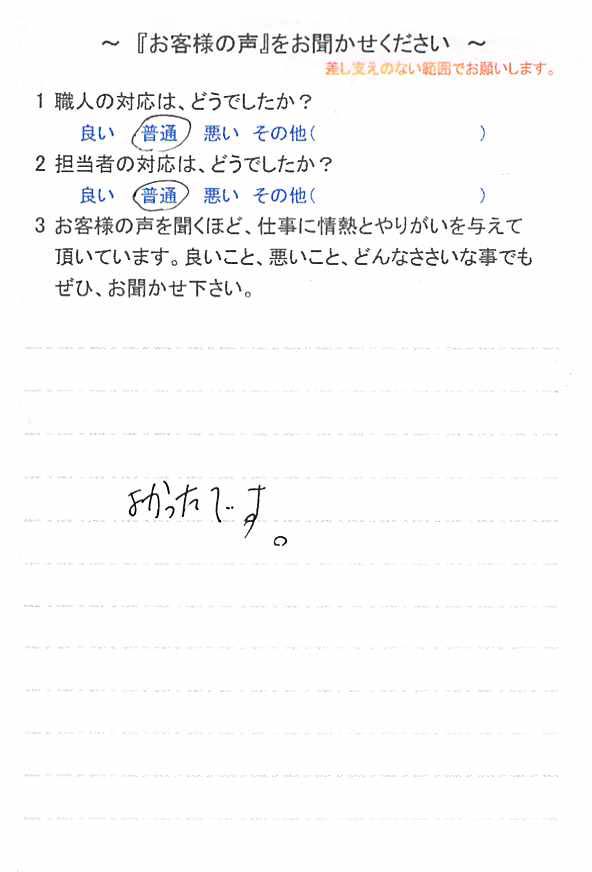 ～ 『お客様の声』をお聞かせください ～
差し支えのない範囲でお願いします。
1 職人の対応は、どうでしたか？
良い 普通 悪い その他( )
2 担当者の対応は、どうでしたか？
良い 普通 悪い その他( )
3 お客様の声を聞くほど、仕事に情熱とやりがいを与えて
頂いています。良いこと、悪いこと、どんなささいな事でも
ぜひ、お聞かせ下さい。
よかったです。